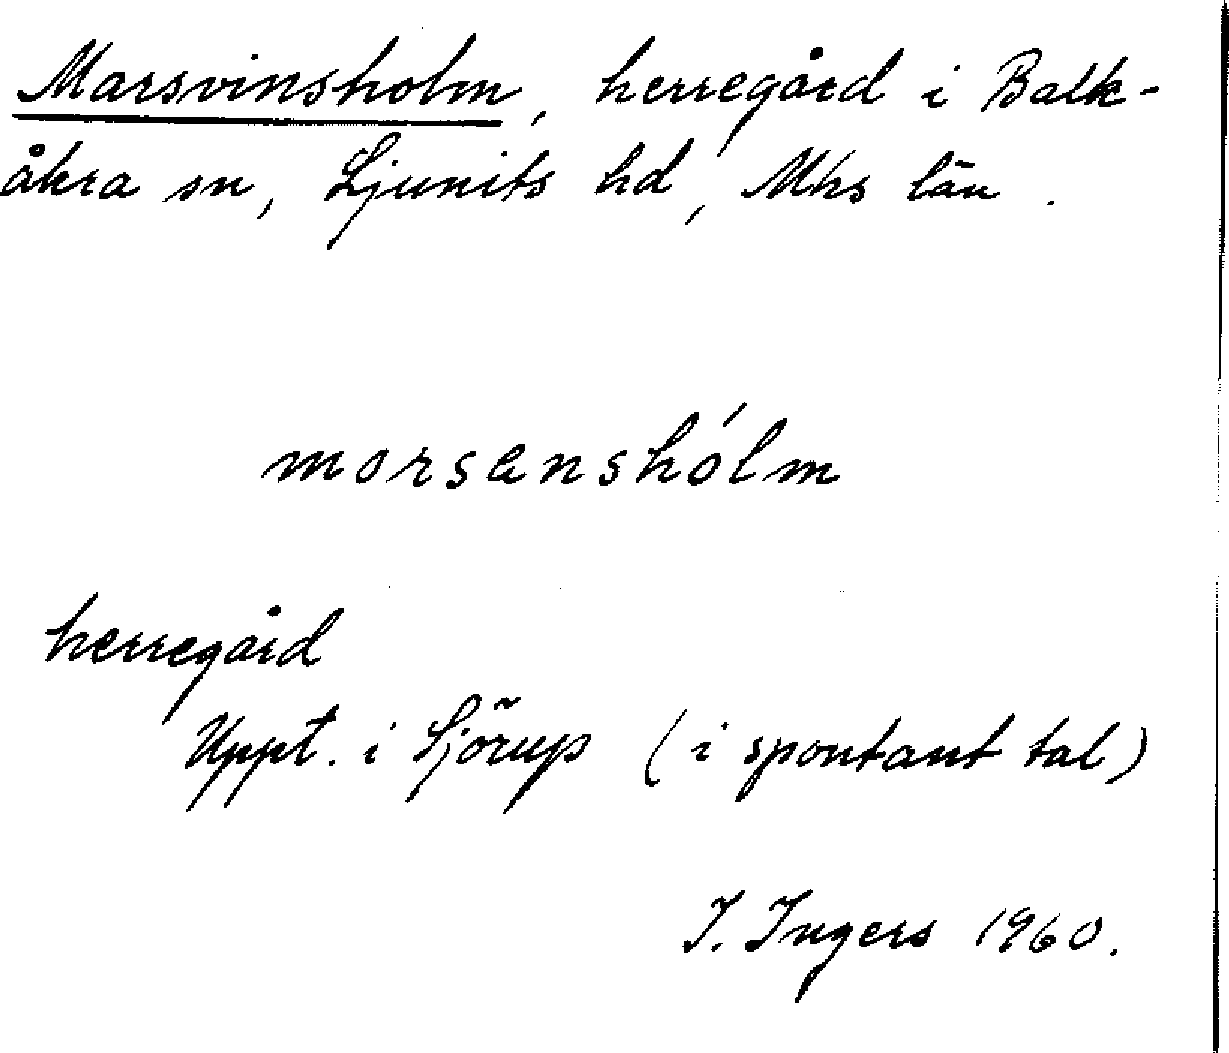 Marsvinsholm, herregård i Balk-
åkra sn, Ljunits hd, Mhs län.
morsanshólm
herregård
Uppt. i Sjörup (i spontant tal)
I. Ingers 1960.